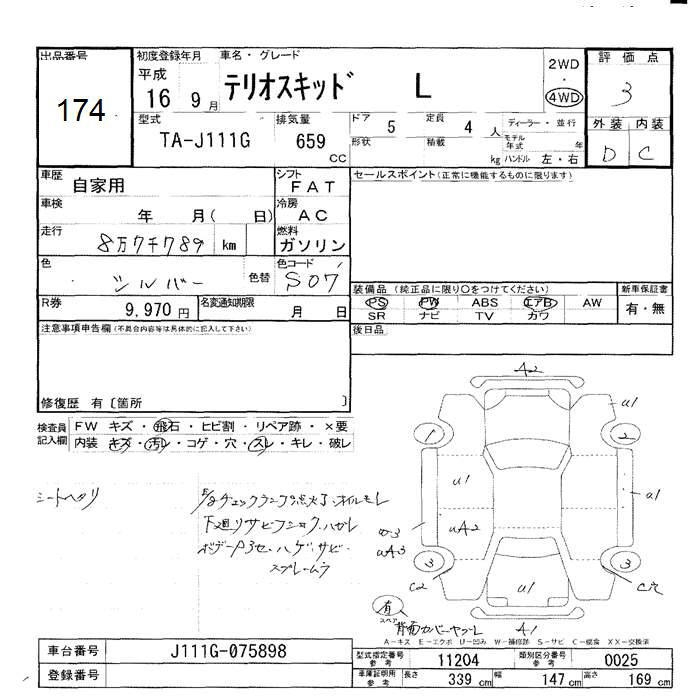 出品番号
174
初度登録年月
平成
16 9 月
車名・グレード
テリオスキッド L
2WD
・
4WD
評価点
3
外装 内装
D C
型式
TA-J111G
排気量
659
CC
ドア
5
定員
4 人
形状
積載
kg
ディーラー・並行
モデル年式 年
ハンドル 左・右
車歴
自家用
シフト
FAT
車検
年 月( 日)
冷房
AC
走行
8万7千789 km
燃料
ガソリン
色
シルバー
色替
色コード
S07
R券
9,970 円
名変通知期限
月 日
セールスポイント(正常に機能するものに限ります)
装備品(純正品に限り○をつけてください)
PS PW ABS エアB AW
SR ナビ TV カワ
新車保証書
有・無
後日品
注意事項申告欄(不具合内容等は具体的に記入して下さい)
修復歴 有〔箇所 〕
検査員記入欄
FW キズ・飛石・ヒビ割・リペア跡・×要
内装 キズ・汚レ・コゲ・穴・スレ・キレ・破レ
シートヘタリ
E/gチェックランプ点灯、オイルモレ
下廻りサビ
ボデーキズ・ハゲ・サビ・
スプレームラ
A2
U1
1
2
U1
U1
UA2
UA3
3
3
C2
C穴
U1
有
スペア
背面カバーヤブレ
A1
A-キズ E-エクボ U-凹み W-補修跡 S-サビ C-腐食 XX-交換済
車台番号
J111G-075898
登録番号
型式指定番号
参考
11204
類別区分番号
参考
0025
車庫証明用
参考
長さ 339 cm 幅 147 cm 高さ 169 cm